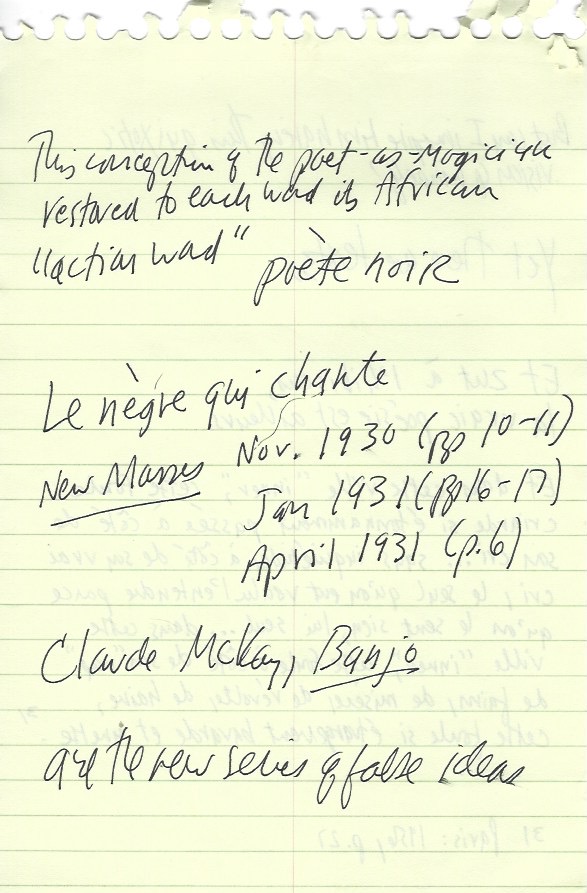 This conception of the poet-as-magician
restored to each word its African
"action word" poète noir
Le nègre qui chante
Nov. 1930 (pp 10-11)
New Masses
Jan 1931 (pp 16-17)
April 1931 (p. 6)
Claude McKay, Banjo
the new series of false ideas